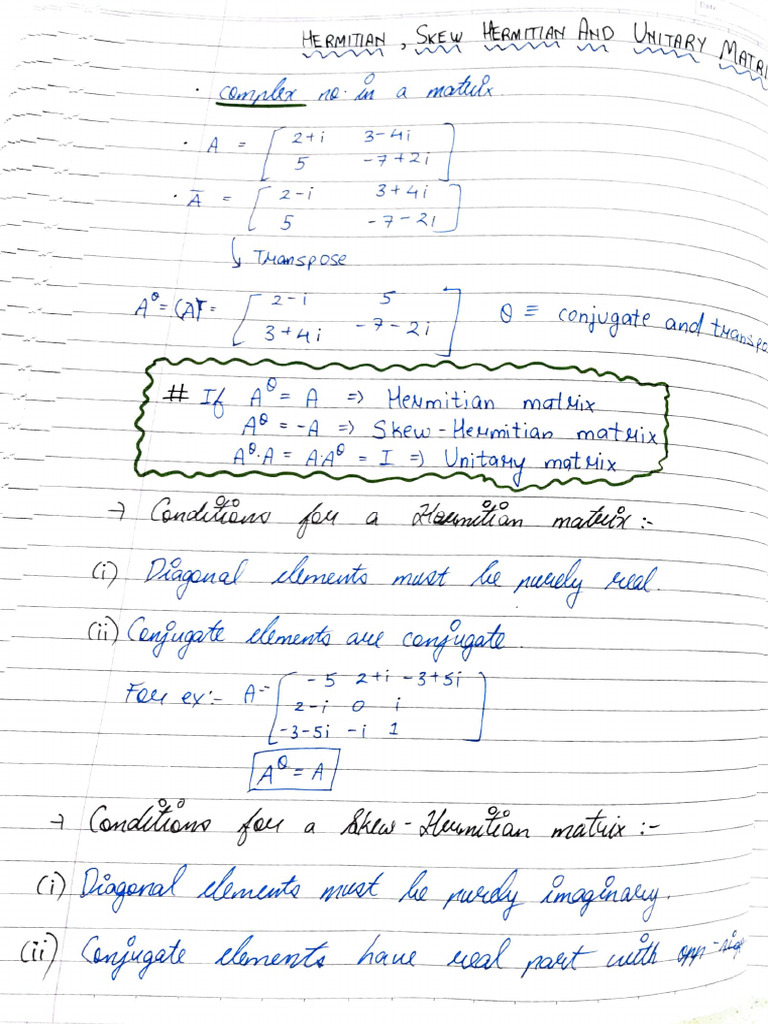 HERMITIAN, SKEW HERMITIAN AND UNITARY MATRI
· complex no. in a matrix
· A = [ 2+i 3-4i
5 -7+2i ]
· A̅ = [ 2-i 3+4i
5 -7-2i ]
↳ Transpose
A^θ = (A̅)^T = [ 2-i 5
3+4i -7-2i ] θ ≡ conjugate and transpo
# If A^θ = A => Hermitian matrix
A^θ = -A => Skew-Hermitian matrix
A^θ.A = A.A^θ = I => Unitary matrix
→ Conditions for a Hermitian matrix:-
(i) Diagonal elements must be purely real.
(ii) Conjugate elements are conjugate.
For ex:- A = [ -5 2+i -3+5i
2-i 0 i
-3-5i -i 1 ]
A^θ = A
→ Conditions for a Skew-Hermitian matrix:-
(i) Diagonal elements must be purely imaginary.
(ii) Conjugate elements have real part with opp-sign